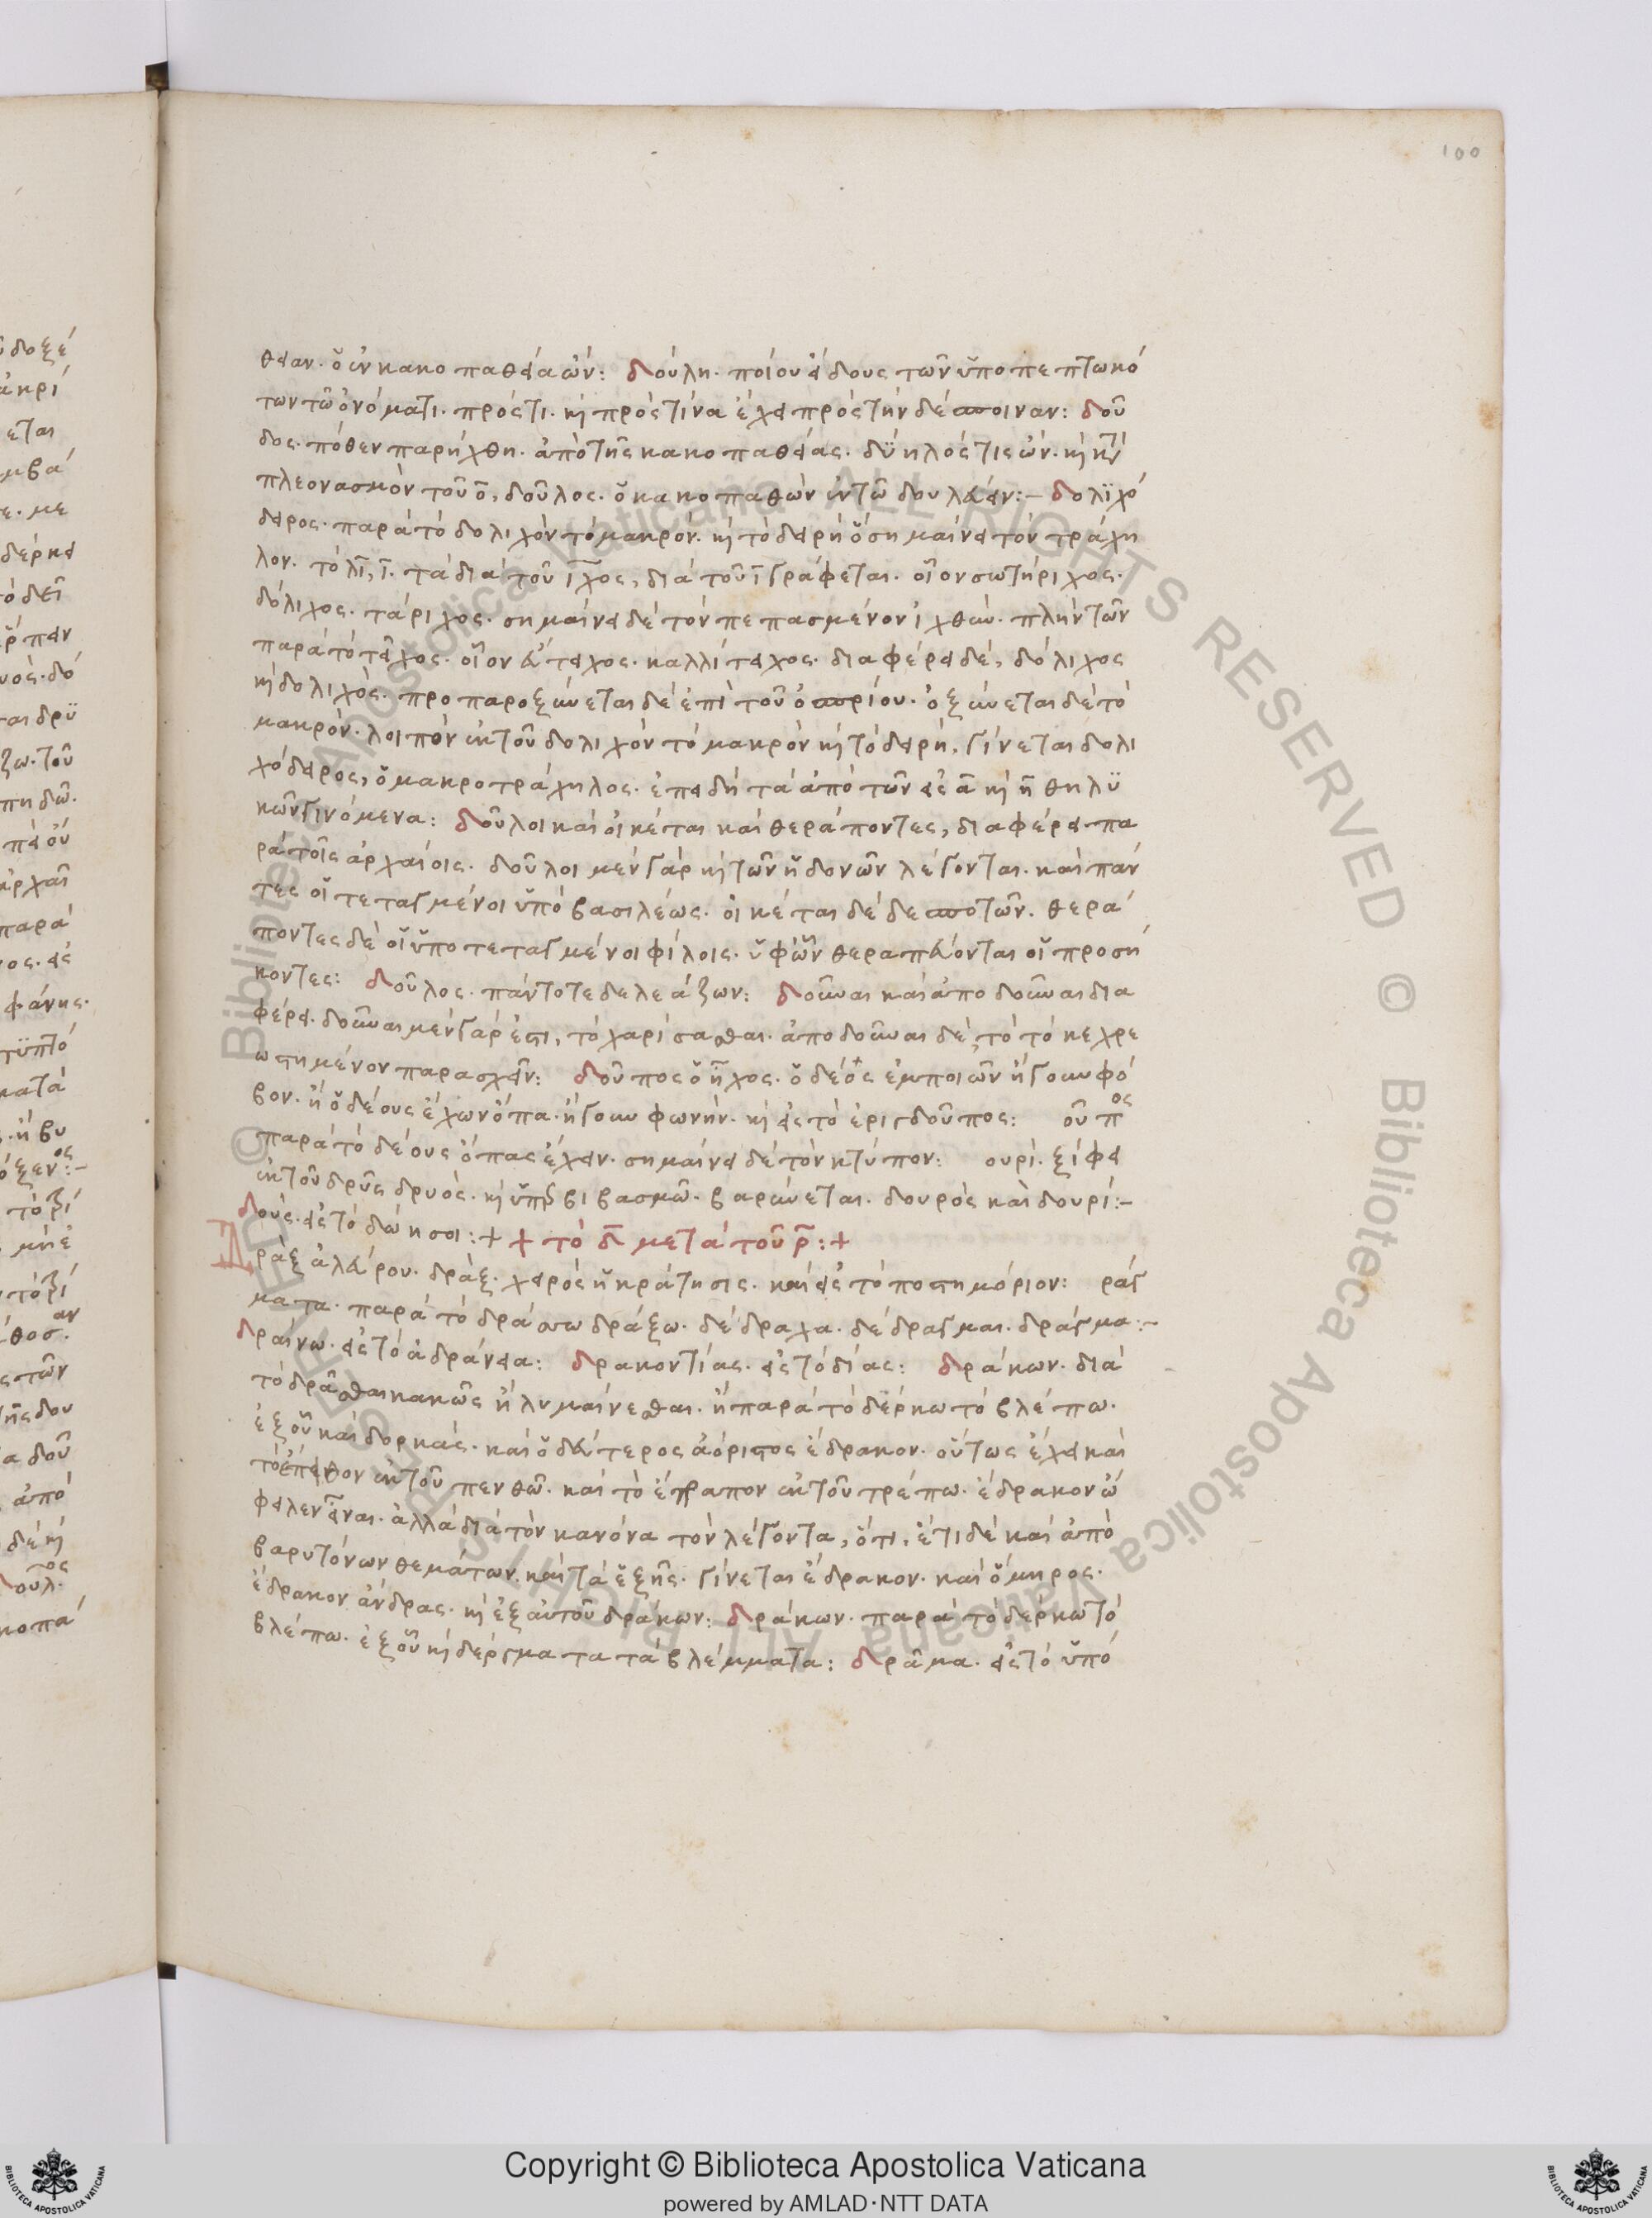 100
θειαν. ὁ ἐν κακοπαθείᾳ ὤν: δούλη. ποίου εἴδους τῶν ὑποπεπτωκό
των τῶ ὀνόματι. πρός τι. κ πρὸς τίνα ἔχει πρὸς τὴν δέσποιναν: δοῦ
λος. πόθεν παρήχθη. ἀπὸ τῆς κακοπαθείας. δύηλός τις ὤν. κ
πλεονασμὸν τοῦ ο, δοῦλος. ὁ κακοπαθῶν ἐν τῶ δουλεύειν:– δολιχό
δειρος. παρὰ τὸ δολιχὸν τὸ μακρόν. κ τὸ δειρὴ ὃ σημαίνει τὸν τράχη
λον. τὸ λι, ι. τὰ διὰ τοῦ ιχος, διὰ τοῦ ι γράφεται. οἷον σωτήριχος.
δόλιχος. τάριχος. σημαίνει δὲ τὸν πεπασμένον ἰχθύν. πλὴν τῶν
παρὰ τὸ τεῖχος. οἷον εὐτειχος. καλλίτειχος. διαφέρει δὲ, δόλιχος
κ δολιχός. προπαροξύνεται δὲ ἐπὶ τοῦ ὀσπρίου. ὀξύνεται δὲ τὸ
μακρόν. λοιπὸν ἐκ τοῦ δολιχὸν τὸ μακρὸν κ τὸ δειρή, γίνεται δολι
χόδειρος, ὁ μακροτράχηλος. ἐπειδὴ τὰ ἀπὸ τῶν εἰς α κ η θηλυ
κῶν γινόμενα: δοῦλοι καὶ οἰκέται καὶ θεράποντες, διαφέρει πα
ρὰ τοῖς ἀρχαίοις. δοῦλοι μὲν γὰρ κ τῶν ἡδονῶν λέγονται. καὶ πάν
τες οἱ τεταγμένοι ὑπὸ βασιλέως. οἰκέται δὲ δεσποτῶν. θερά
ποντες δὲ οἱ ὑποτεταγμένοι φίλοις. ὑφ' ὧν θεραπεύονται οἱ προσή
κοντες: δοῦλος. πάντοτε δελεάζων: δοῦναι καὶ ἀποδοῦναι δια
φέρει. δοῦναι μὲν γάρ ἐστι, τὸ χαρίσασθαι. ἀποδοῦναι δὲ, τὸ τὸ κεχρε
ωστημένον παρασχεῖν: δοῦπος ὁ ἦχος. ὁ δέος ἐμποιῶν ἤγουν φό
βον. ἢ ὁ δέους ἔχων ὄπα. ἤγουν φωνήν. κ εἰς τὸ ἐρίγδουπος: οῦπος
παρὰ τὸ δέους ὄπας ἔχειν. σημαίνει δὲ τὸν κτύπον: ουρὶ. ξίφει
ἐκ τοῦ δρῦς δρυός. κ ὑπερβιβασμῶ. βαρύνεται. δουρὸς καὶ δουρί:–
δούς. εἰς τὸ δώησοι:+ + τὸ δ μετὰ τοῦ ρ:+
Δράξ ἀλεύρου. δράξ. χειρὸς ἡ κράτησις. καὶ εἰς τὸ ποστημόριον: ράγ
ματα. παρὰ τὸ δράσσω δράξω. δέδραχα. δέδραγμαι. δράγμα:–
δραίνω. εἰς τὸ ἀδράνεια: δρακοντίας. εἰς τὸ δίας: δράκων. διὰ
τὸ δρᾶσθαι κακῶς ἢ λυμαίνεσθαι. ἢ παρὰ τὸ δέρκω τὸ βλέπω.
ἐξ οὗ καὶ δορκάς. καὶ ὁ δεύτερος ἀόριστος ἔδρακον. οὕτως ἔχει καὶ
τὸ ἔπαθον ἐκ τοῦ πενθῶ. καὶ τὸ ἔτραπον ἐκ τοῦ τρέπω. ἔδρακον ὤ
φειλεν εἶναι. ἀλλὰ διὰ τὸν κανόνα τὸν λέγοντα, ὅτι, ἔτι δὲ καὶ ἀπὸ
βαρυτόνων θεμάτων. καὶ τὰ ἑξῆς. γίνεται ἔδρακον. καὶ ὅμηρος.
ἔδρακον ἄνδρας. κ ἐξ αὐτοῦ δράκων: δράκων. παρὰ τὸ δέρκω τὸ
βλέπω. ἐξ οὗ κ δέργματα τὰ βλέμματα: δρᾶμα. εἰς τὸ ὑπό
Copyright © Biblioteca Apostolica Vaticana
powered by AMLAD·NTT DATA